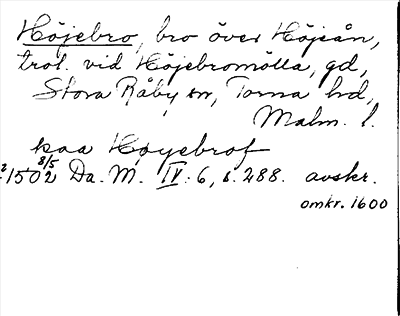 Höjebro, bro över Höjeån,
trol. vid Höjebromölla, gd,
Stora Råby sn, Torna hd,
Malm. l.
paa Høyebrof
8/5
1502 Da. M. IV: 6, s. 288. avskr.
omkr. 1600